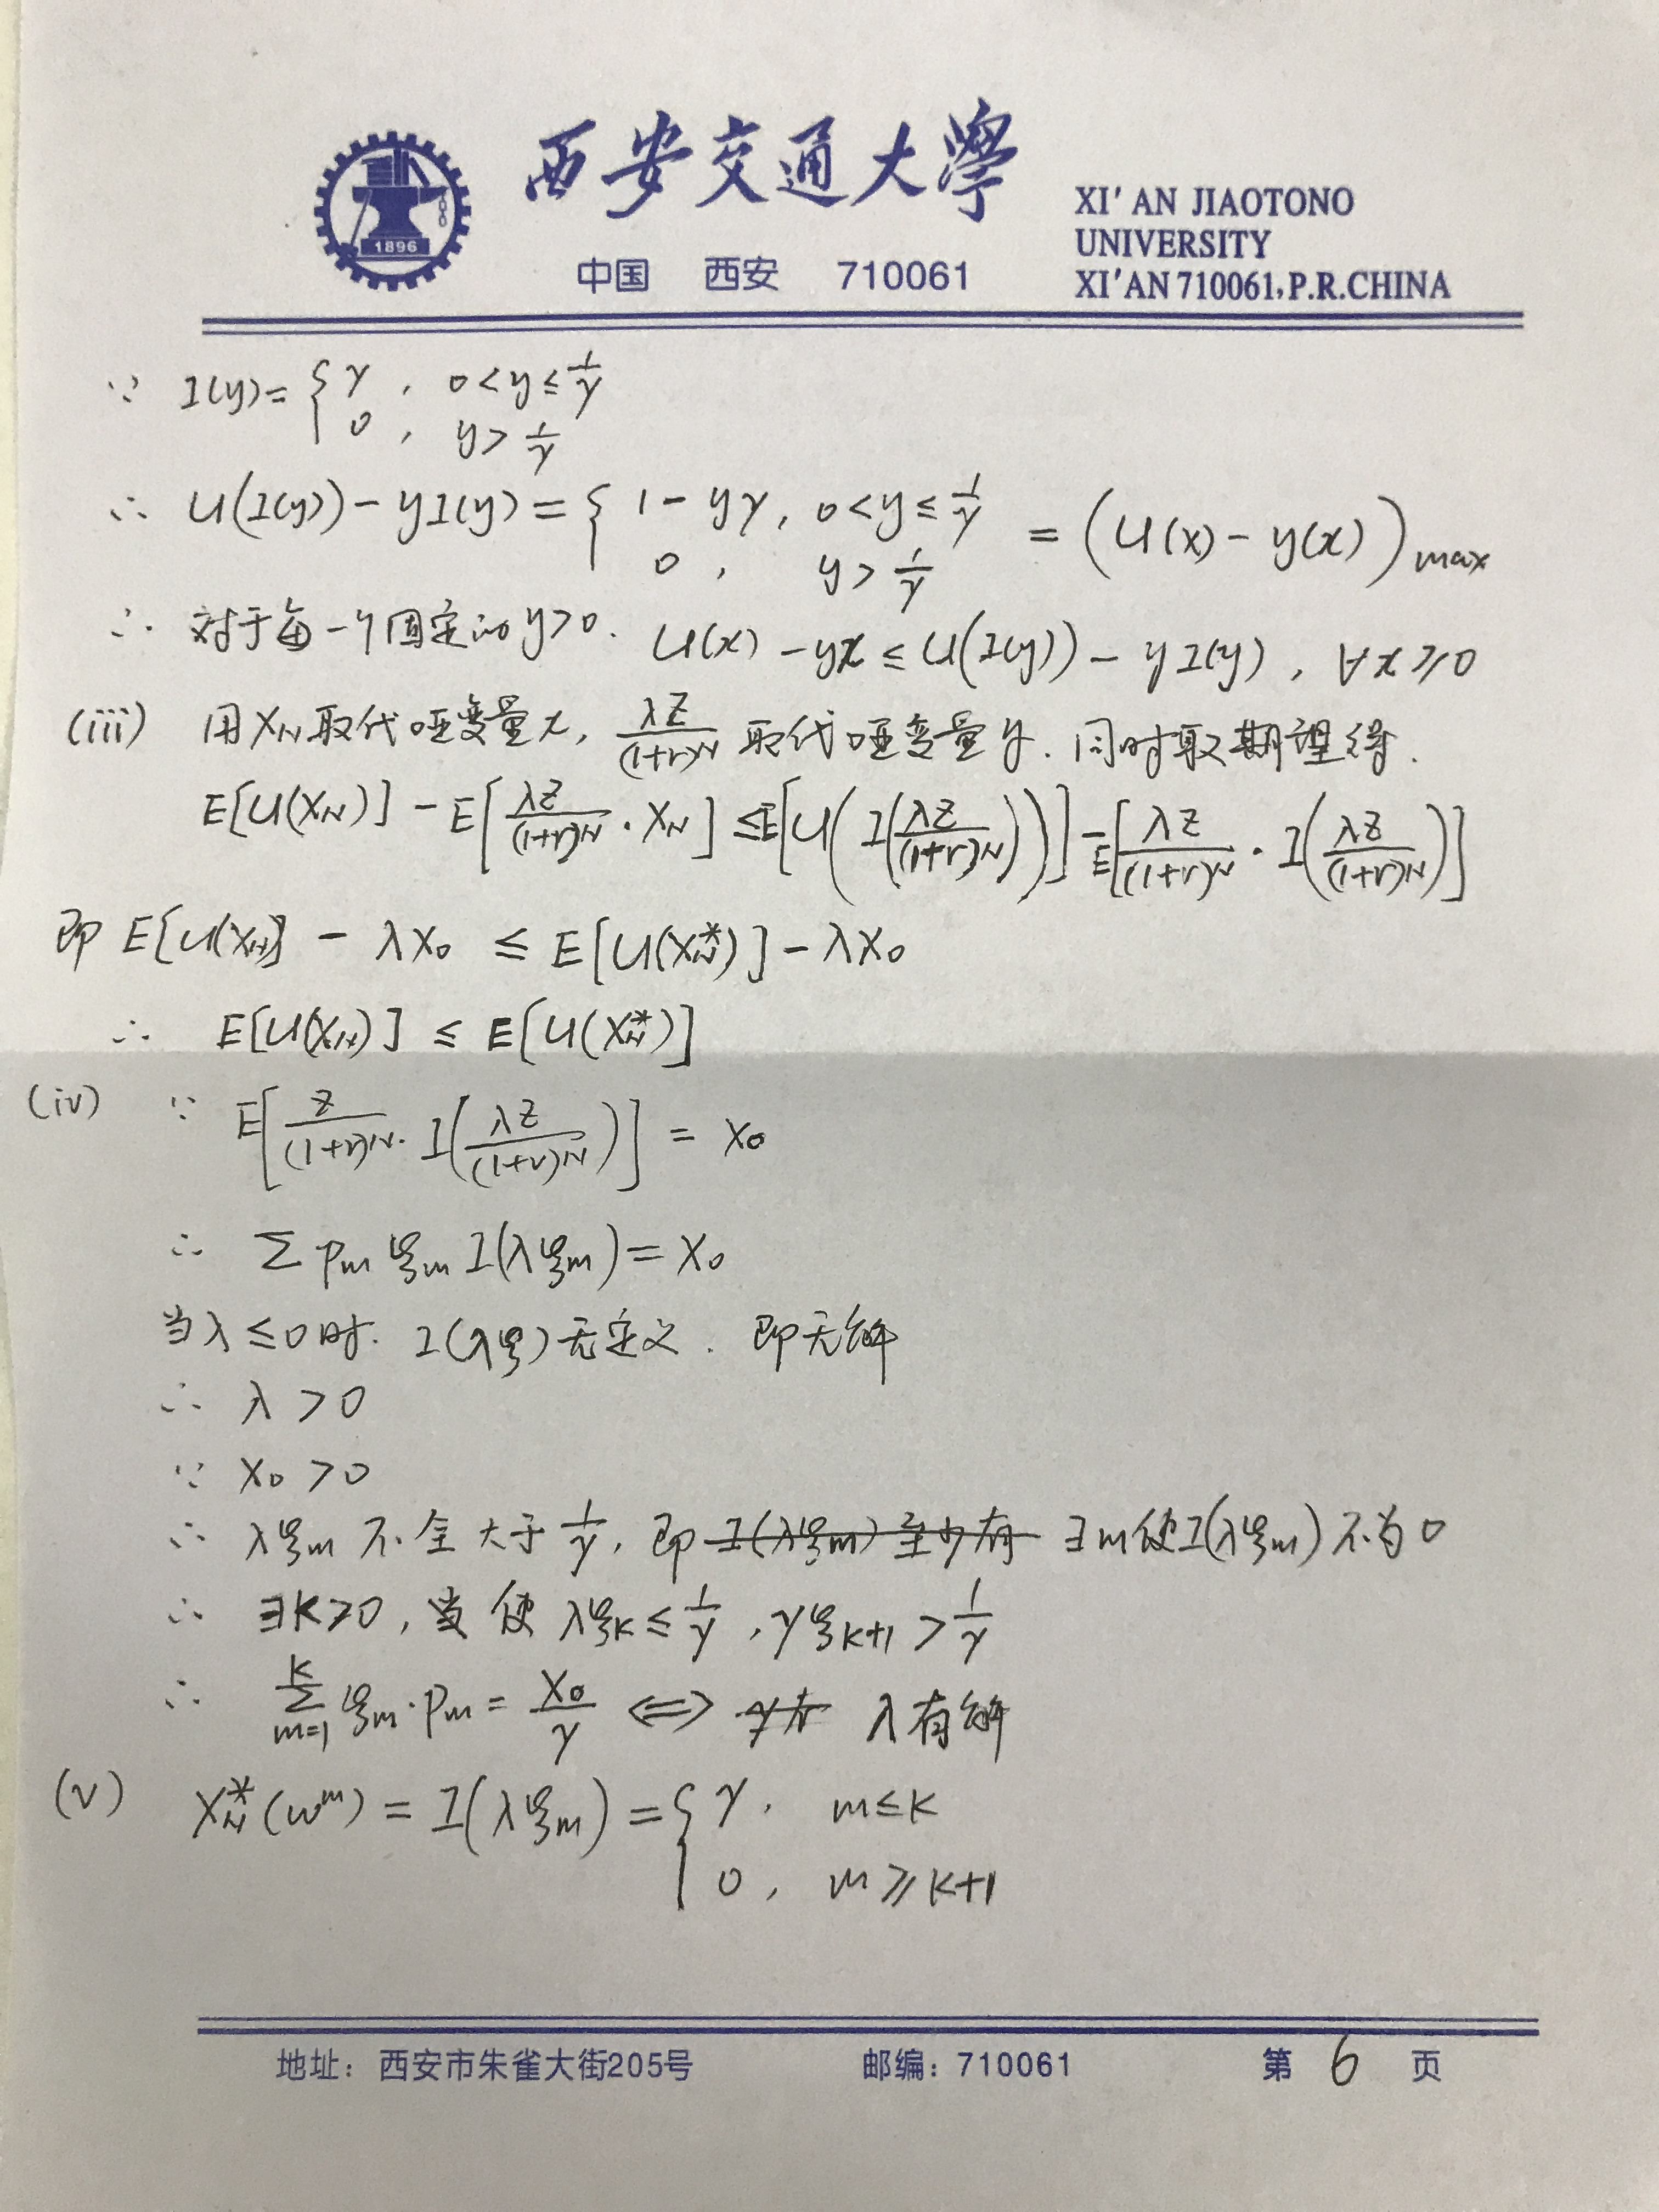 西安交通大學
中国 西安 710061
XI'AN JIAOTONO
UNIVERSITY
XI'AN 710061,P.R.CHINA
1896
∵ I(y)= { γ , 0<y≤1/γ
0 , y>1/γ
∴ U(I(y))-yI(y)= { 1-yγ, 0<y≤1/γ = (U(x)-y(x))max
0 , y>1/γ
∴ 对于每一个固定的y>0. U(x)-yx≤U(I(y))-yI(y), ∀x≥0
(iii) 用X_N取代哑变量x, λZ/(1+r)^N 取代哑变量y. 同时取期望得.
E[U(X_N)]-E[λZ/(1+r)^N · X_N]≤E[U(I(λZ/(1+r)^N))]-E[λZ/(1+r)^N · I(λZ/(1+r)^N)]
即 E[U(X_N)] - λX₀ ≤ E[U(X_N^*)]-λX₀
∴ E[U(X_N)] ≤ E[U(X_N^*)]
(iv) ∵ E[Z/(1+r)^N · I(λZ/(1+r)^N)] = X₀
∴ Σ p_m ξ_m I(λξ_m)=X₀
当λ≤0时. I(λξ)无定义. 即无解
∴ λ>0
∵ X₀>0
∴ λξ_m 不全大于1/γ, 即 I(λξ_m)至少有 ∃m使I(λξ_m)不为0
∴ ∃K>0, 当 使 λξ_K≤1/γ , γξ_{K+1}>1/γ
∴ Σ_{m=1}^{K} ξ_m·p_m = X₀/γ ⟺ λ有解
(v) X_N^*(ω^m) = I(λξ_m) = { γ, m≤K
0, m≥K+1
地址：西安市朱雀大街205号 邮编：710061 第 6 页